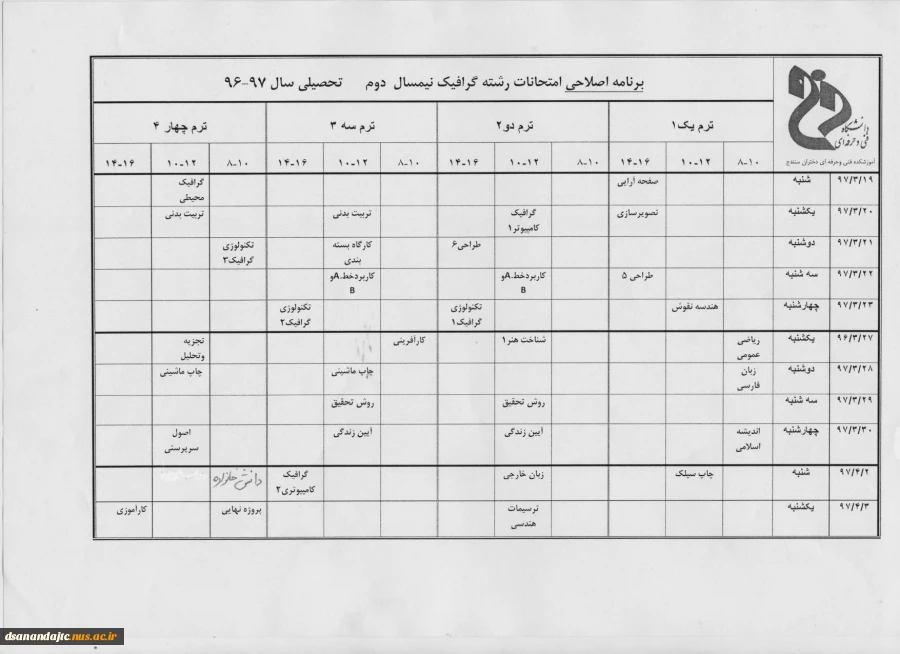 برنامه اصلاحی امتحانات رشته گرافیک نیمسال دوم تحصیلی سال ۹۷-۹۶
دانشگاه
فنی و حرفه‌ای
آموزشکده فنی وحرفه ای دختران سنندج
ترم یک۱ ترم دو۲ ترم سه ۳ ترم چهار ۴
۸-۱۰ ۱۰-۱۲ ۱۴-۱۶ ۸-۱۰ ۱۰-۱۲ ۱۴-۱۶ ۸-۱۰ ۱۰-۱۲ ۱۴-۱۶ ۸-۱۰ ۱۰-۱۲ ۱۴-۱۶
۹۷/۳/۱۹ شنبه صفحه آرایی گرافیک
محیطی
۹۷/۳/۲۰ یکشنبه تصویرسازی گرافیک تربیت بدنی تربیت بدنی
کامپیوتر۱
۹۷/۳/۲۱ دوشنبه طراحی۶ کارگاه بسته تکنولوژی
بندی گرافیک۳
۹۷/۳/۲۲ سه شنبه طراحی ۵ کاربردخط.Aو کاربردخط.Aو
B B
۹۷/۳/۲۳ چهارشنبه هندسه نقوش تکنولوژی تکنولوژی
گرافیک۱ گرافیک۲
۹۶/۳/۲۷ یکشنبه ریاضی شناخت هنر۱ کارآفرینی تجزیه
عمومی وتحلیل
۹۷/۳/۲۸ دوشنبه زبان چاپ ماشینی چاپ ماشینی
فارسی
۹۷/۳/۲۹ سه شنبه روش تحقیق روش تحقیق
۹۷/۳/۳۰ چهارشنبه اندیشه آیین زندگی آیین زندگی اصول
اسلامی سرپرستی
۹۷/۴/۲ شنبه چاپ سیلک زبان خارجی گرافیک دانش خانواده
کامپیوتری۲
۹۷/۴/۳ یکشنبه ترسیمات پروژه نهایی کارآموزی
هندسی
dsanandajtc.nus.ac.ir